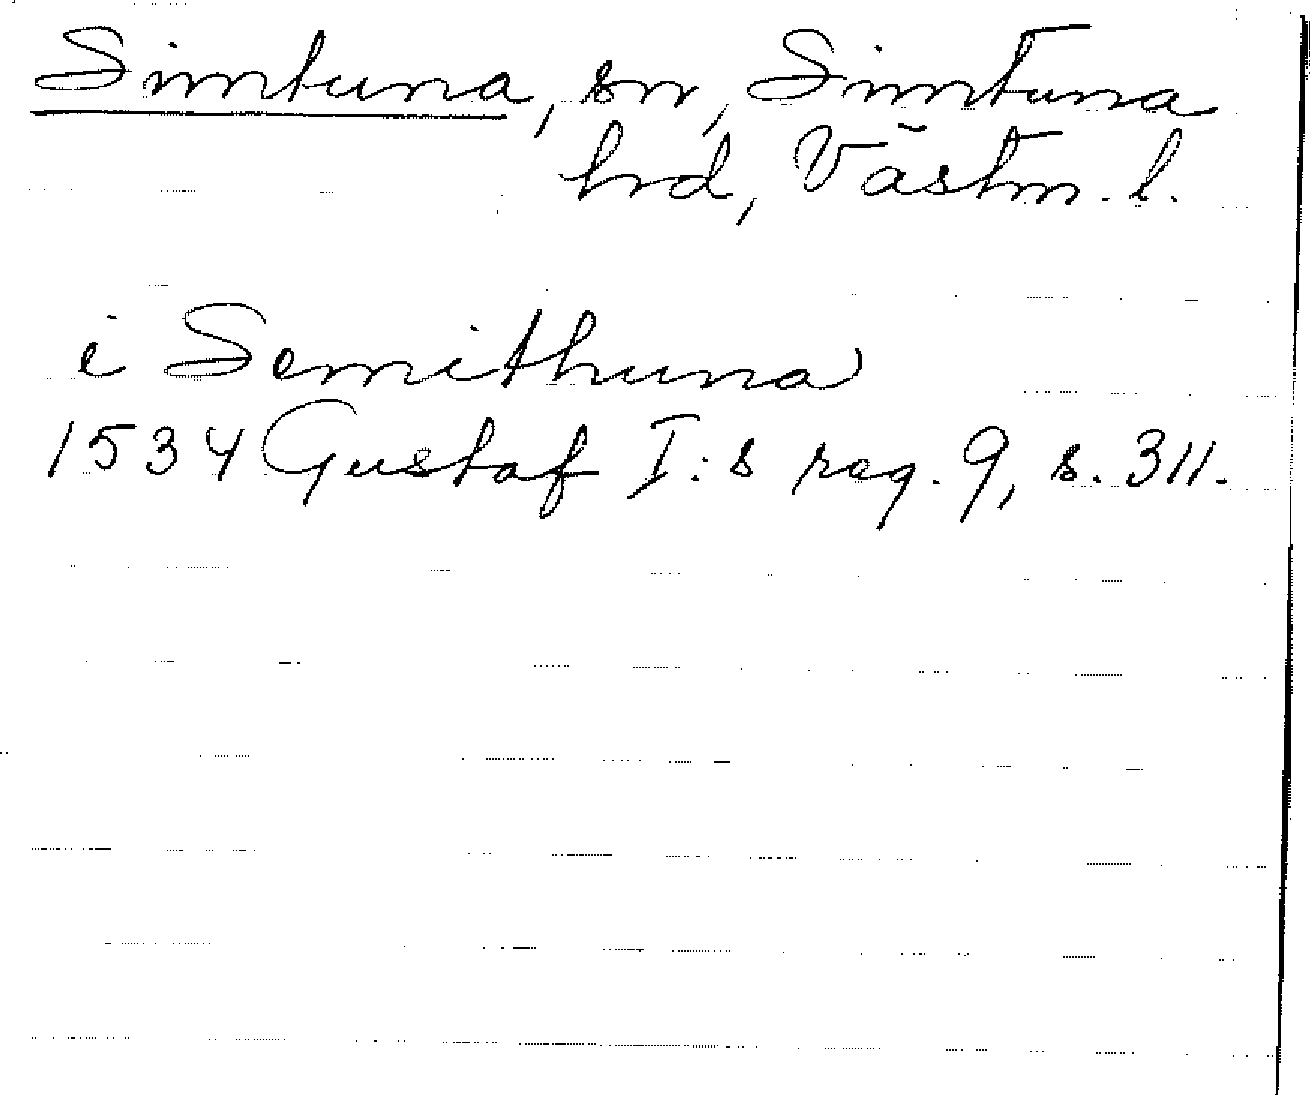 Simtuna, sn, Simtuna
hrd, Västm. l.
i Semithuna
1534 Gustaf I:s reg. 9, s. 311.